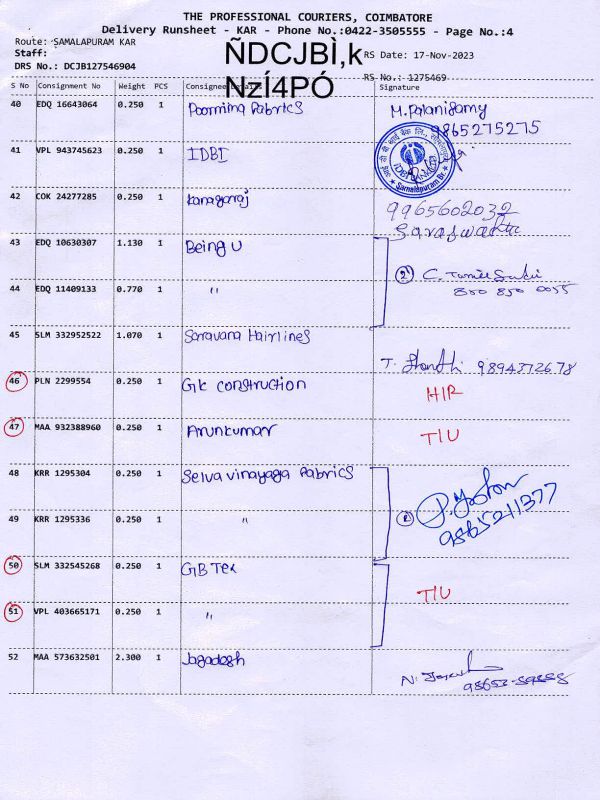 THE PROFESSIONAL COURIERS, COIMBATORE
Delivery Runsheet - KAR - Phone No.:0422-3505555 - Page No.:4
Route: SAMALAPURAM KAR
Staff:
DRS No.: DCJB127546904
ÑDCJBÌ,k
NzÍ4PÓ
RS Date: 17-Nov-2023
RS No.: 1275469
S No Consignment No Weight PCS Consignee Details Signature
40 EDQ 16643064 0.250 1 Poornima Fabrics M. Palanisamy
9865275275
41 VPL 943745623 0.250 1 IDBI
Samalapuram Br.
42 COK 24277285 0.250 1 Kanagaraj 9965602032
Saraswathi
43 EDQ 10630307 1.130 1 Being U
2 C.
44 EDQ 11409133 0.770 1 " 800 850 0055
45 SLM 332952522 1.070 1 Saravana Hairlines
T. Shanthi 9894372678
46 PLN 2299554 0.250 1 GK construction HIR
47 MAA 932388960 0.250 1 Arunkumar TIU
48 KRR 1295304 0.250 1 Selva vinayaga Fabrics
49 KRR 1295336 0.250 1 " 2 9865211377
50 SLM 332545268 0.250 1 GB Tex
TIU
51 VPL 403665171 0.250 1 "
52 MAA 573632501 2.300 1 Jagadesh
N.